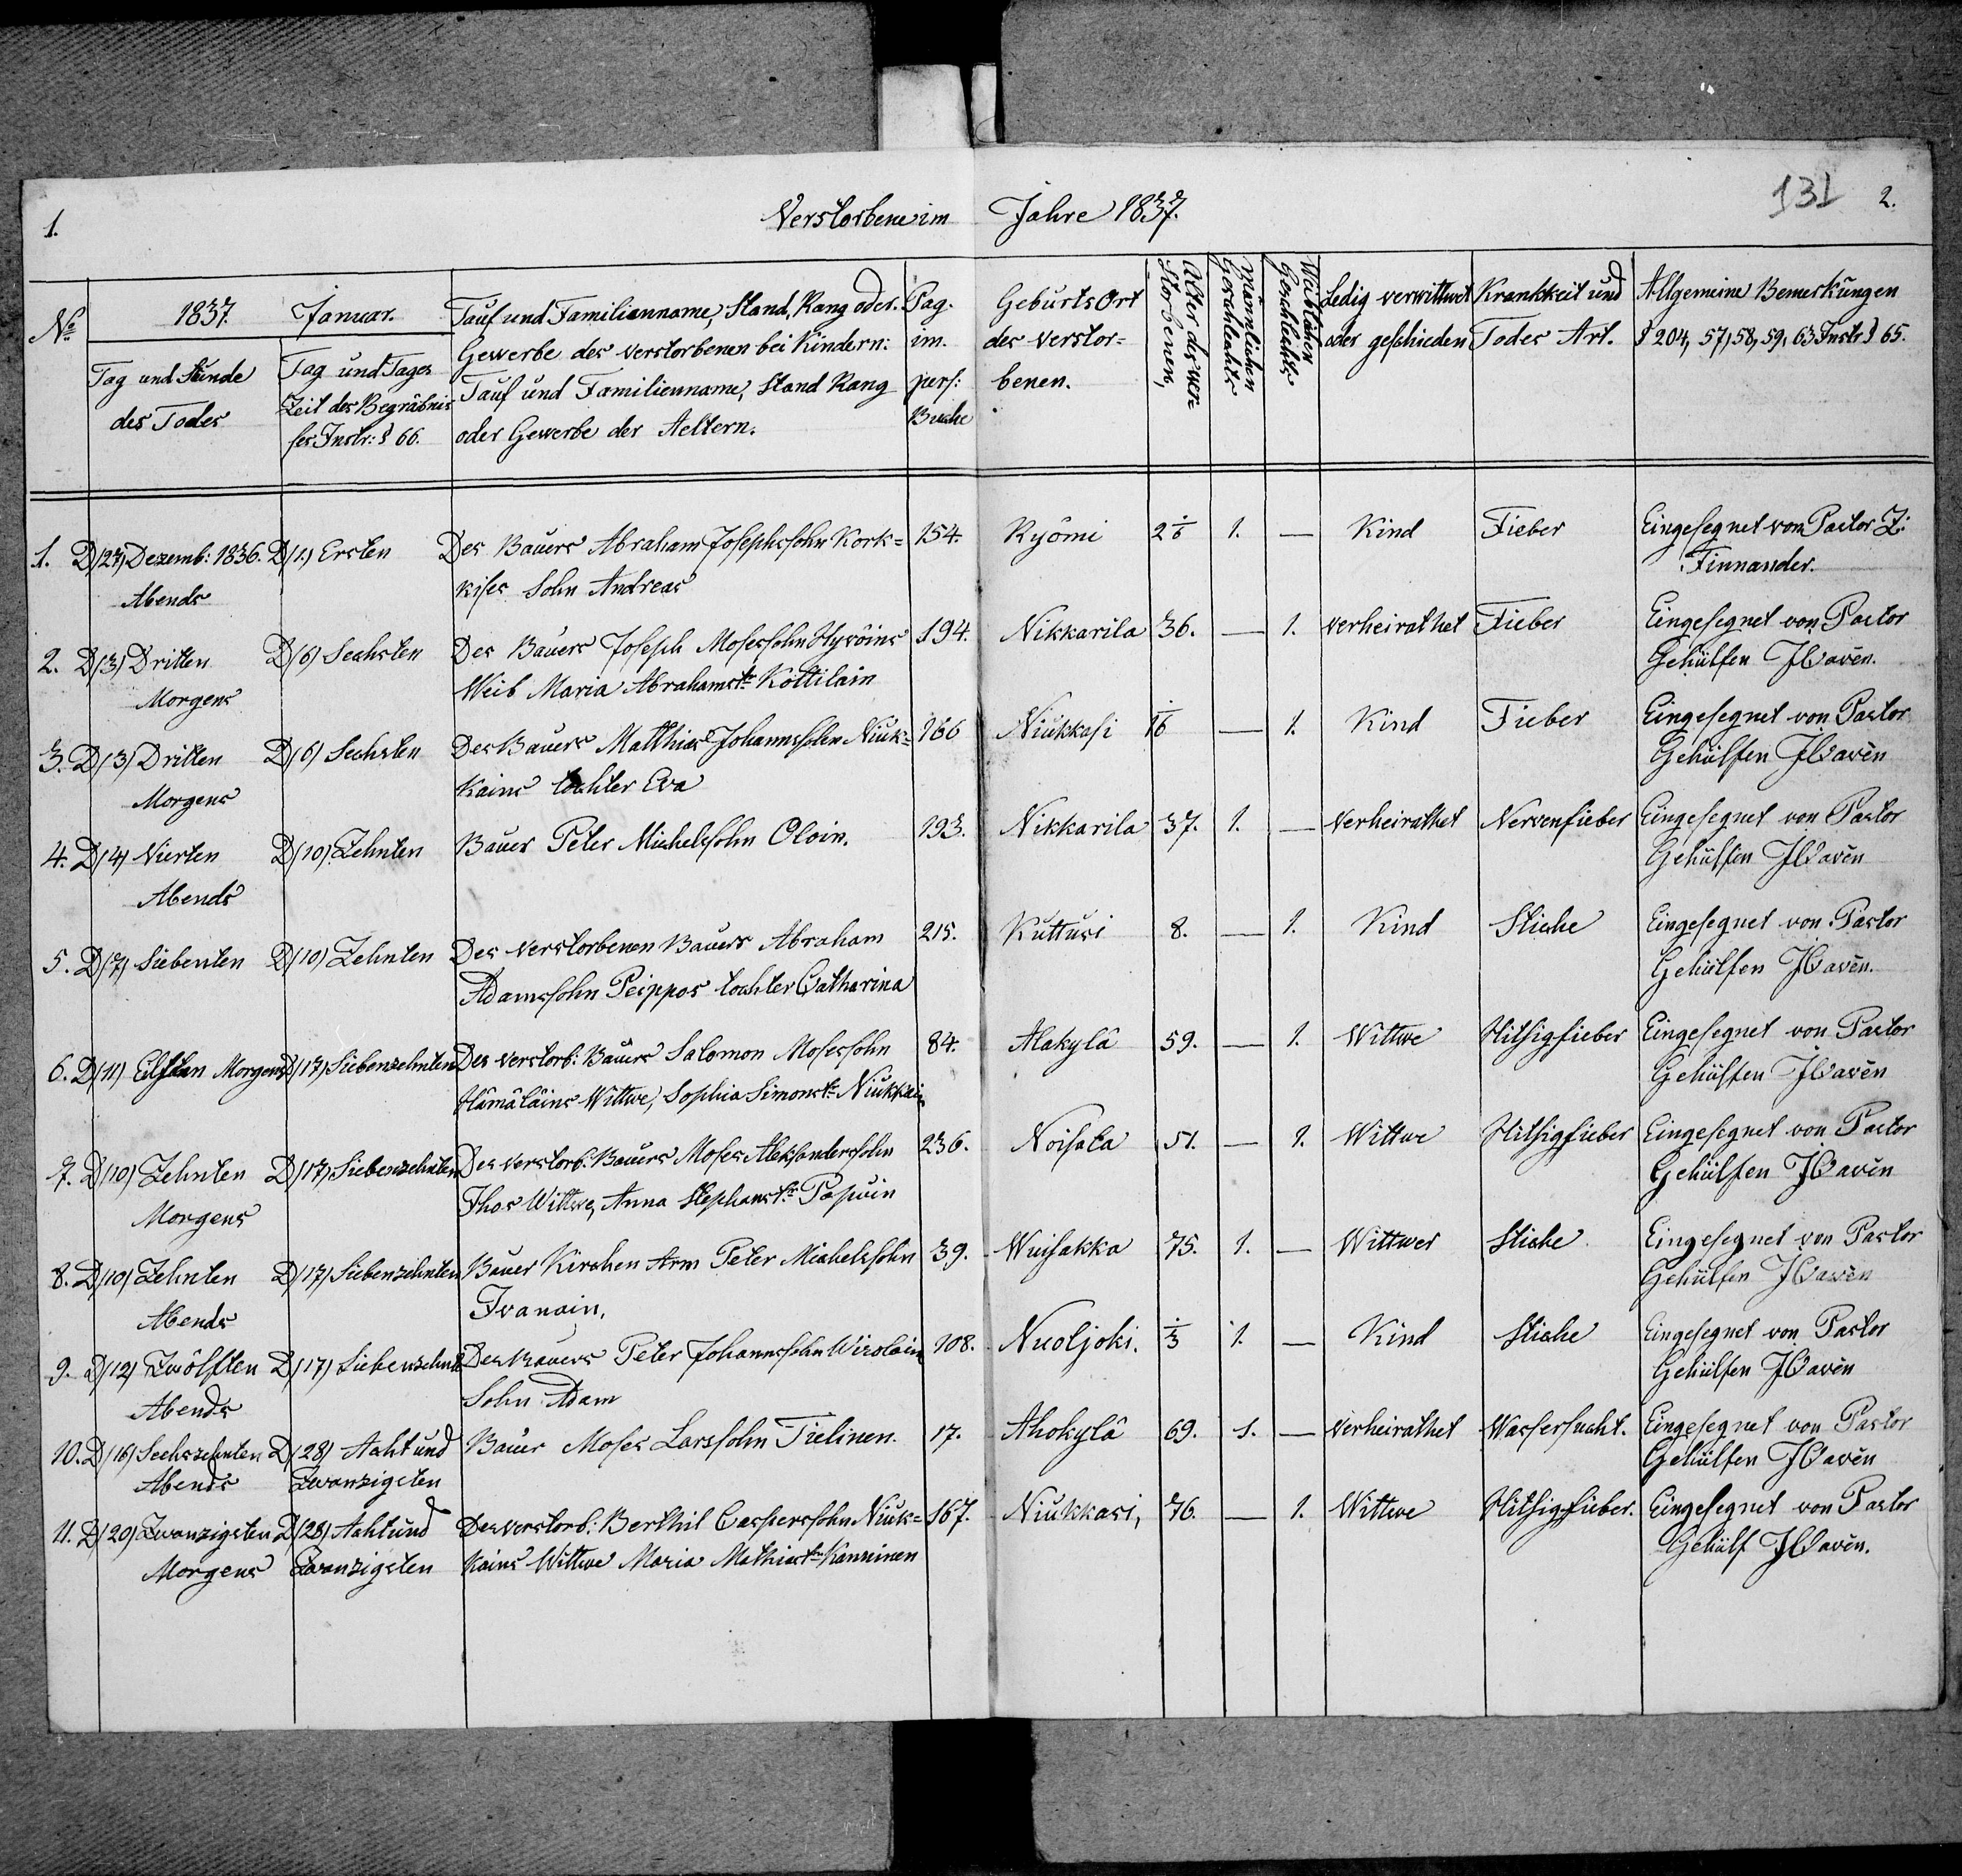 1. Verstorbene im Jahre 1837. 131 2.
№ 1837. Januar. Tauf und Familienname, Stand, Rang oder Pag. Geburts Ort Alter des ver= Männlichen Weiblichen Ledig verwittwet Krankheit und Allgemeine Bemerkungen
Gewerbe des verstorbenen bei Kindern: im. des verstor= storbenen, Geschlechts Geschlechts oder geschieden Todes Art. § 204, 57, 58, 59, 63 Instr § 65.
Tag und Stunde Tag und Tages Tauf und Familienname, Stand Rang pers: benen.
des Todes Zeit des Begräbnis oder Gewerbe der Aeltern. Buche
ses Instr: § 66.
1. D(27) Dezemb: 1836. D(1.) Ersten Des Bauers Abraham Josephssohn Kork= 154. Ryömi 2 1. — Kind Fieber Eingesegnet vom Pastor Z:
Abends kises Sohn Andreas Finnander.
2. D(3) Dritten D(6) Sechsten Des Bauers Joseph Mosessohn Hyvöins 194. Nikkarila 36. — 1. verheirathet Fieber Eingesegnet von Pastor
Morgens Weib Maria Abrahamstr Köttiläin Gehülfen Haven.
3. D(3) Dritten D(6) Sechsten Des Bauers Matthias Johannssohn Niuk= 166 Niukkasi — 1. Kind Fieber Eingesegnet von Pastor
Morgens kains tochter Eva Gehülfen Haven
4. D(4) Vierten D(10) Zehnten Bauer Peter Michelssohn Oloin. 193. Nikkarila 37. 1. — Verheirathet Nervenfieber Eingesegnet von Pastor
Abends Gehülfen Haven
5. D(7) Siebenten D(10) Zehnten Des verstorbenen Bauers Abraham 215. Kuttusi 8. — 1. Kind Stiche Eingesegnet von Pastor
Adamssohn Peippos tochter Catharina Gehülfen Haven.
6. D(11) Eilften Morgens D(17) Siebenzehnten Des verstorb: Bauers Salomon Mosessohn 84. Alakylä 59. — 1. Wittwe Hitsigfieber Eingesegnet von Pastor
Hämäläins Wittwe, Sophia Simonstr Niukkain Gehülfen Haven
7. D(10) Zehnten D(17) Siebenzehnten Des verstorb. Bauers Moses Aleksanderssohn 236. 51. — 1. Wittwe Hitsigfieber Eingesegnet von Pastor
Morgens Ihos Wittwe, Anna Stephanstr Gehülfen Haven
8. D(10) Zehnten D(17) Siebenzehnten Bauer Kirchen Arm Peter Michelssohn 39. Wuisakka 75. 1. — Wittwer Stiche Eingesegnet von Pastor
Abends Ivanain. Gehülfen Haven
9. D(12) Zwölften D(17) Siebenzehnt Des Bauers Peter Johannssohn Wirolain 108. Nuoljoki. 1. — Kind Stiche Eingesegnet von Pastor
Abends Sohn Adam Gehülfen Haven
10. D(16) Sechszehnten D(28) Acht und Bauer Moses Larssohn Tielinen. 17. Ahokylä 69. 1. — Verheirathet Wassersucht. Eingesegnet von Pastor
Abends Zwanzigsten Gehülfen Haven
11. D(20) Zwanzigsten D(28) Acht und Des verstorb: Berthil Casperssohn Niuk= 167. Niukkasi, 76. — 1. Wittwe Hitsigfieber. Eingesegnet von Pastor
Morgens Zwanzigsten kains Wittwe Maria Mathiastr Kanninen Gehülf Haven.